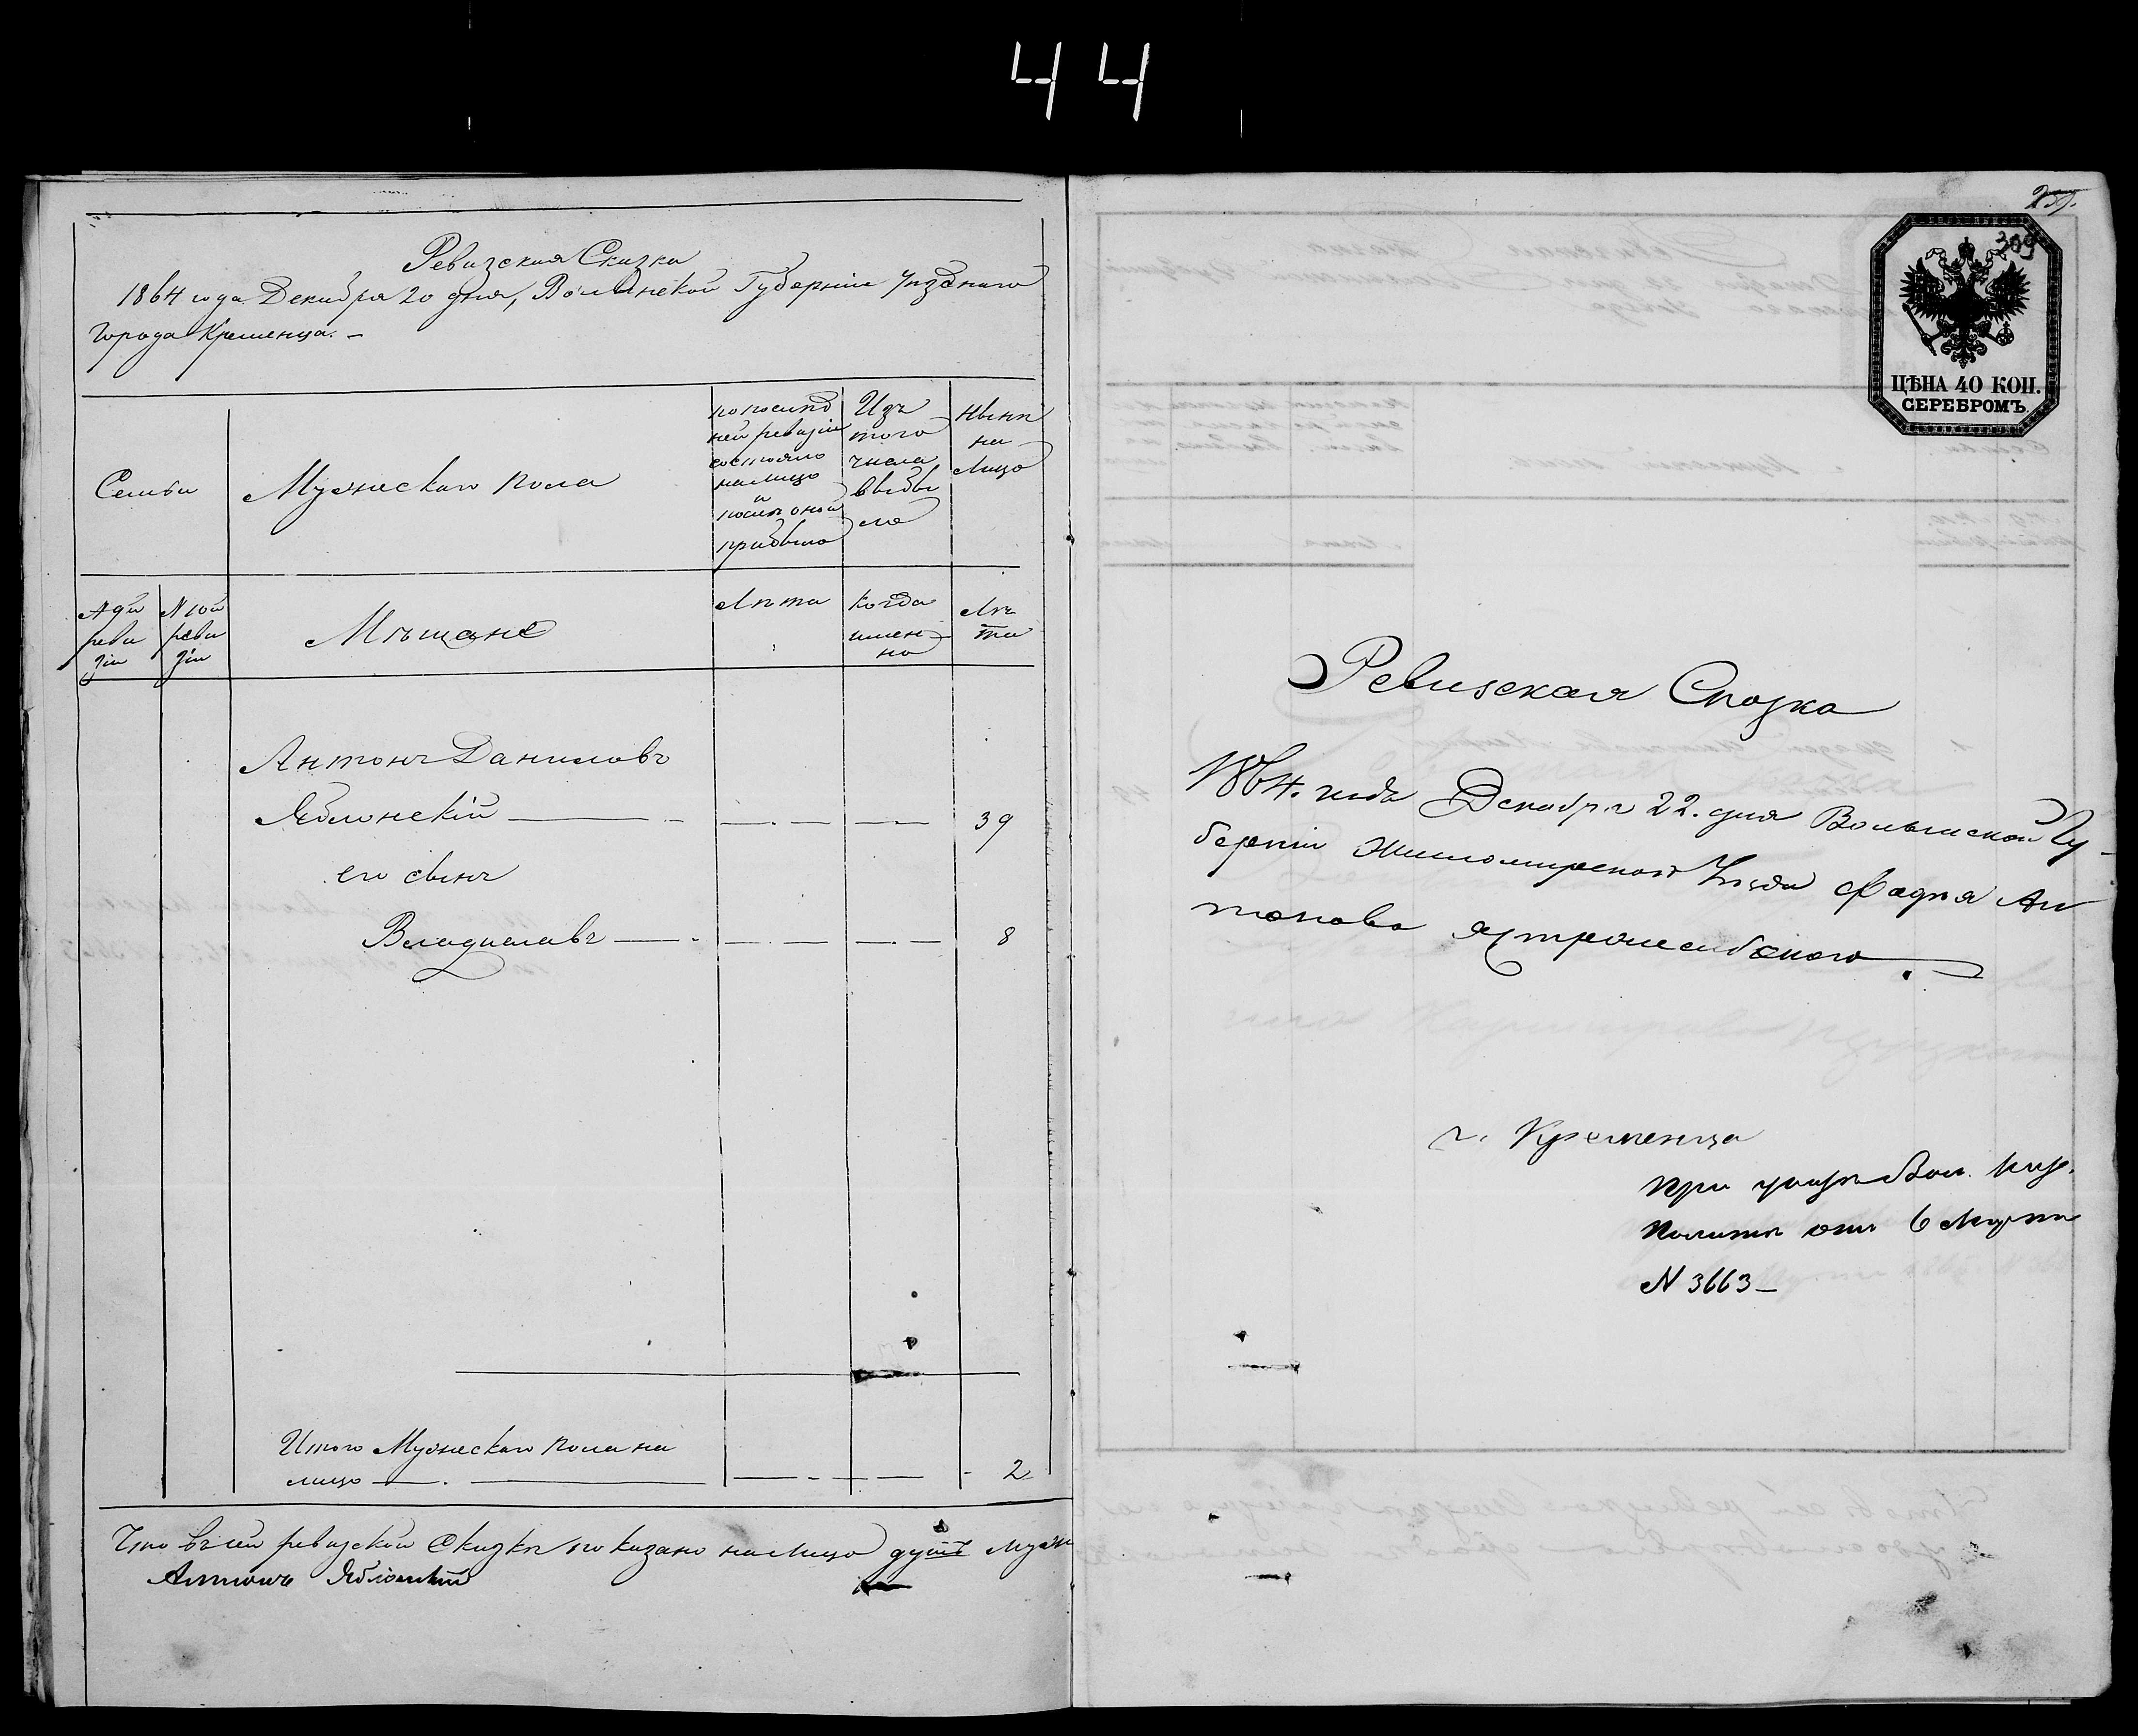 44
Ревизская Сказка
1864 года Декабря 20 дня, Волынской Губерніи уѣзднаго
города Кременца. –
Семьи
Мужескаго пола
по послѣд
ней ревизіи
состояло
на лицо
и
послѣ оной
прибыло
Изъ
того
числа
выбы
ло
Нынѣ
на
лицо
№ 9й
реви
зіи
№ 10й
реви
зіи
Мѣщане
Лѣта
когда
имен-
но
Лѣ
та
Антонъ Даниловъ
Яблонскій 39
его сынъ
Владиславъ 8
Итого Мужескаго пола на
лицо 2
Что въ сей ревизской Сказкѣ показано на лицо душъ муж
Антонъ Яблонскій
309
ЦѢНА 40 КОП.
СЕРЕБРОМЪ.
Ревизская Сказка
1864. года Декабря 22. дня Волынской Гу-
берніи Житомирскаго Уѣзда Фадѣя Ан
тонова
г. Кременца
При указѣ Вол. Каз.
Палаты отъ 6 Марта
N 3663 –